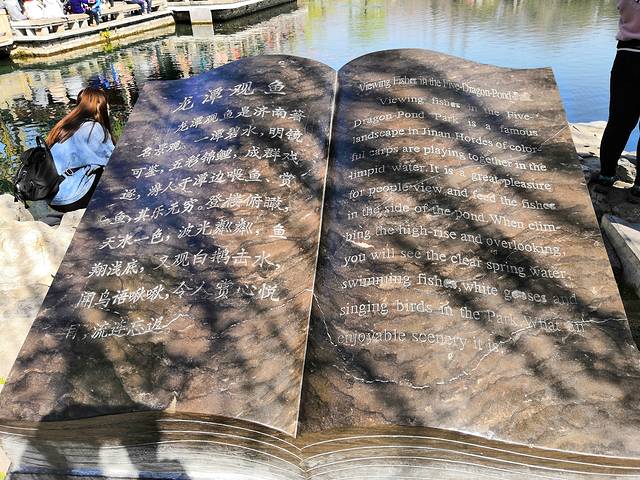 龙潭观鱼
龙潭观鱼是济南著
名景观。一潭碧水,明镜
可鉴,五彩锦鲤,成群戏
逐,游人于潭边喂鱼赏
鱼,其乐无穷。登楼俯瞰,
天水一色,波光粼粼,鱼
翔浅底,又观白鹅击水,
闻鸟语啾啾,令人赏心悦
目,流连忘返。
Viewing Fishes in the Five-Dragon-Pond
Viewing fishes in the Five-
Dragon-Pond Park is a famous
landscape in Jinan. Hordes of color-
ful carps are playing together in the
limpid water. It is a great pleasure
for people view and feed the fishes
in the side of the pond. When clim-
bing the high-rise and overlooking,
you will see the clear spring water,
swimming fishes, white geeses and
singing birds in the Park. What an
enjoyable scenery it is